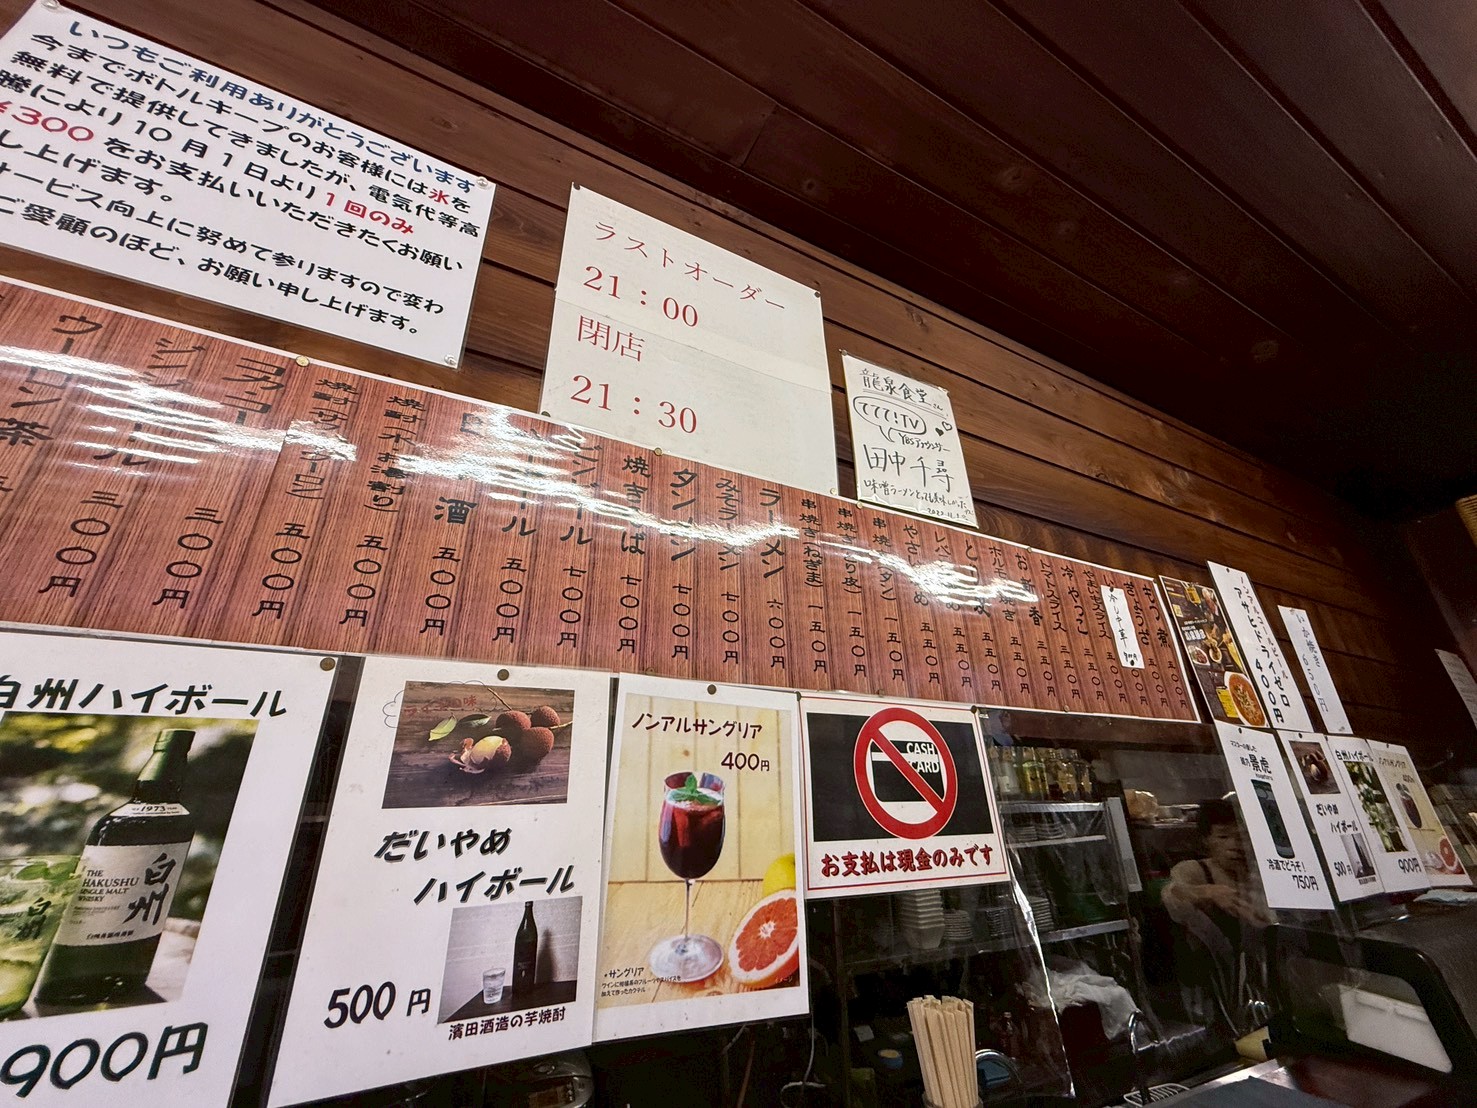 いつもご利用ありがとうございます
今までボトルキープのお客様には氷を
無料で提供してきましたが、電気代等高
騰により10月1日より1回のみ
¥300をお支払いいただきたくお願い
し上げます。
サービス向上に努めて参りますので変わ
ご愛顧のほど、お願い申し上げます。
ラストオーダー
21:00
閉店
21:30
龍泉食堂さん
ててて!TV
YBSアナウンサー
田中千尋
味噌ラーメンとっても美味しかった
ウーロン茶 三〇〇円
ジンジャエール 三〇〇円
コカコーラ 三〇〇円
焼酎(サワー) 五〇〇円
焼酎(水・お湯割り) 五〇〇円
日本酒 五〇〇円
五〇〇円
ビンビール 七〇〇円
焼きそば 七〇〇円
タンメン 七〇〇円
みそラーメン 七〇〇円
ラーメン 六〇〇円
串焼き(ねぎま) 一五〇円
串焼き(とり皮) 一五〇円
串焼き(タン) 一五〇円
やさい炒め 五五〇円
レバ 五五〇円
五五〇円
ホルモン焼き 五五〇円
お新香 三五〇円
トマトスライス 三五〇円
冷やっこ 三五〇円
冷し中華
もつ煮
ノンアルコールビール
アサヒドライゼロ
400円
いか焼き
650円
白州ハイボール
SINCE 1973
THE
HAKUSHU
SINGLE MALT
WHISKY
白州
900円
だいやめ
ハイボール
500円
濱田酒造の芋焼酎
ノンアルサングリア
400円
*サングリア
ワインに柑橘系のフルーツやスパイスを
加えて作ったカクテル
CASH
CARD
お支払は現金のみです
景虎
冷酒でどうぞ!
750円
だいやめ
ハイボール
500円
白州ハイボール
900円
ノンアルサングリア
400円